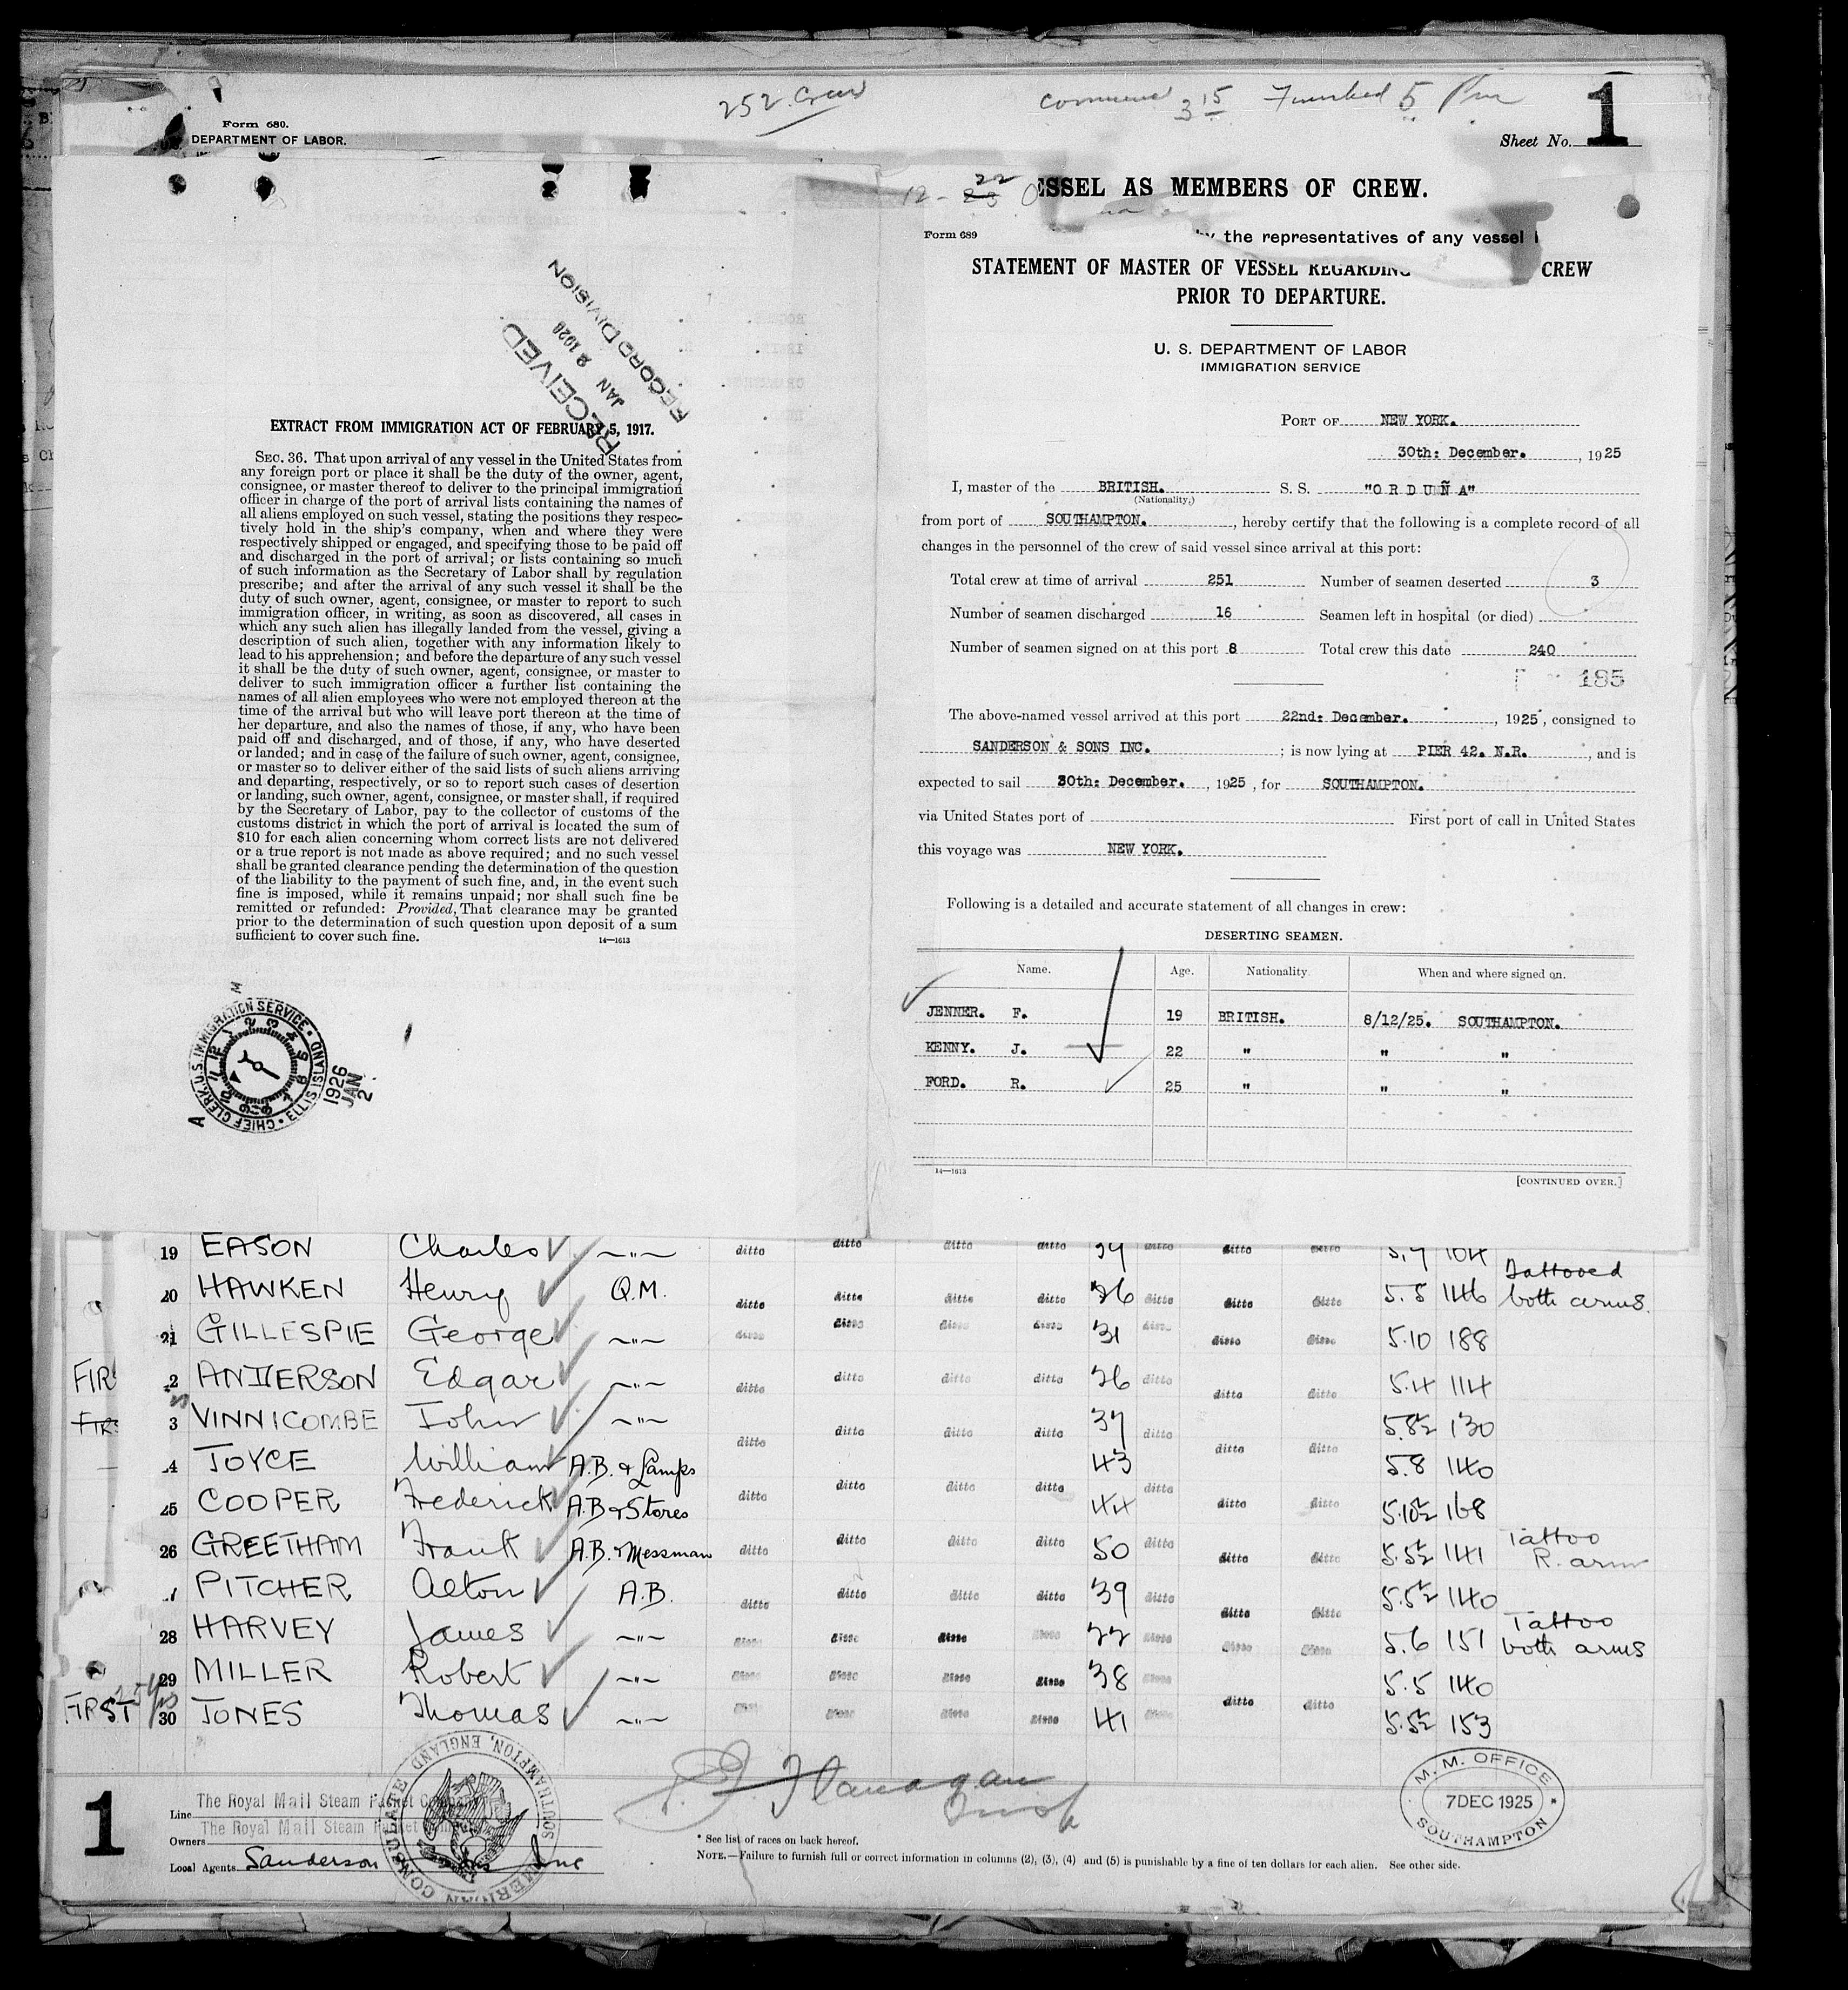 252 Crew
3 15
5 Pm
Form 680.
DEPARTMENT OF LABOR.
Sheet No. 1
12-
22
ESSEL AS MEMBERS OF CREW.
by the representatives of any vessel
RECEIVED
JAN 2 1926
RECORD DIVISION
EXTRACT FROM IMMIGRATION ACT OF FEBRUARY 5, 1917.
SEC. 36. That upon arrival of any vessel in the United States from
any foreign port or place it shall be the duty of the owner, agent,
consignee, or master thereof to deliver to the principal immigration
officer in charge of the port of arrival lists containing the names of
all aliens employed on such vessel, stating the positions they respec-
tively hold in the ship's company, when and where they were
respectively shipped or engaged, and specifying those to be paid off
and discharged in the port of arrival; or lists containing so much
of such information as the Secretary of Labor shall by regulation
prescribe; and after the arrival of any such vessel it shall be the
duty of such owner, agent, consignee, or master to report to such
immigration officer, in writing, as soon as discovered, all cases in
which any such alien has illegally landed from the vessel, giving a
description of such alien, together with any information likely to
lead to his apprehension; and before the departure of any such vessel
it shall be the duty of such owner, agent, consignee, or master to
deliver to such immigration officer a further list containing the
names of all alien employees who were not employed thereon at the
time of the arrival but who will leave port thereon at the time of
her departure, and also the names of those, if any, who have been
paid off and discharged, and of those, if any, who have deserted
or landed; and in case of the failure of such owner, agent, consignee,
or master so to deliver either of the said lists of such aliens arriving
and departing, respectively, or so to report such cases of desertion
or landing, such owner, agent, consignee, or master shall, if required
by the Secretary of Labor, pay to the collector of customs of the
customs district in which the port of arrival is located the sum of
$10 for each alien concerning whom correct lists are not delivered
or a true report is not made as above required; and no such vessel
shall be granted clearance pending the determination of the question
of the liability to the payment of such fine, and, in the event such
fine is imposed, while it remains unpaid; nor shall such fine be
remitted or refunded: Provided, That clearance may be granted
prior to the determination of such question upon deposit of a sum
sufficient to cover such fine.
14—1613
CHIEF CLERK U.S. IMMIGRATION SERVICE • ELLIS ISLAND
1926
JAN
2
Form 689
STATEMENT OF MASTER OF VESSEL REGARDING CREW
PRIOR TO DEPARTURE.
U. S. DEPARTMENT OF LABOR
IMMIGRATION SERVICE
PORT OF NEW YORK.
30th: December. , 1925
I, master of the BRITISH. S. S. "O R D U Ñ A"
(Nationality.)
from port of SOUTHAMPTON. , hereby certify that the following is a complete record of all
changes in the personnel of the crew of said vessel since arrival at this port:
Total crew at time of arrival 251 Number of seamen deserted 3
Number of seamen discharged 16 Seamen left in hospital (or died)
Number of seamen signed on at this port 8 Total crew this date 240
185
The above-named vessel arrived at this port 22nd: December. , 1925, consigned to
SANDERSON & SONS INC. ; is now lying at PIER 42. N.R. , and is
expected to sail 30th: December. , 1925, for SOUTHAMPTON.
via United States port of First port of call in United States
this voyage was NEW YORK.
Following is a detailed and accurate statement of all changes in crew:
DESERTING SEAMEN.
Name. Age. Nationality. When and where signed on.
JENNER. F. 19 BRITISH. 8/12/25. SOUTHAMPTON.
KENNY. J. 22 " " "
FORD. R. 25 " " "
14—1613
[CONTINUED OVER.]
19 EASON Charles ~"~ ditto ditto ditto ditto ditto ditto ditto
20 HAWKEN Henry Q.M. ditto ditto ditto ditto 26 ditto ditto ditto 5.5 146 Tattooed both arms.
21 GILLESPIE George ~"~ ditto ditto ditto ditto 31 ditto ditto ditto 5.10 188
2 ANDERSON Edgar ~"~ ditto ditto ditto ditto 26 ditto ditto ditto 5.4 114
3 VINNICOMBE John ~"~ ditto ditto ditto ditto 37 ditto ditto ditto 5.8½ 130
4 JOYCE William A.B. & Lamps 43 5.8 140
25 COOPER Frederick A.B & Stores ditto ditto ditto ditto 44 ditto ditto ditto 5.10½ 168
26 GREETHAM Frank A.B. & Messman ditto ditto ditto ditto 50 ditto ditto ditto 5.5½ 141 Tattoo R. arm
PITCHER Alton A.B. ditto ditto ditto ditto 39 ditto ditto ditto 5.5½ 140
28 HARVEY James ~"~ ditto ditto ditto ditto 22 ditto ditto ditto 5.6 151 Tattoo both arms
29 MILLER Robert ~"~ ditto ditto ditto ditto 38 ditto 5.5 140
FIRST 30 JONES Thomas ~"~ ditto ditto ditto ditto 41 ditto ditto ditto 5.5½ 153
AMERICAN CONSULATE SOUTHAMPTON, ENGLAND
M. M. OFFICE
7 DEC 1925
SOUTHAMPTON
1
Line The Royal Mail Steam Packet Company
Owners The Royal Mail Steam Packet
Local Agents Sanderson & Sons Inc
Flanagan
* See list of races on back hereof.
NOTE.—Failure to furnish full or correct information in columns (2), (3), (4) and (5) is punishable by a fine of ten dollars for each alien. See other side.